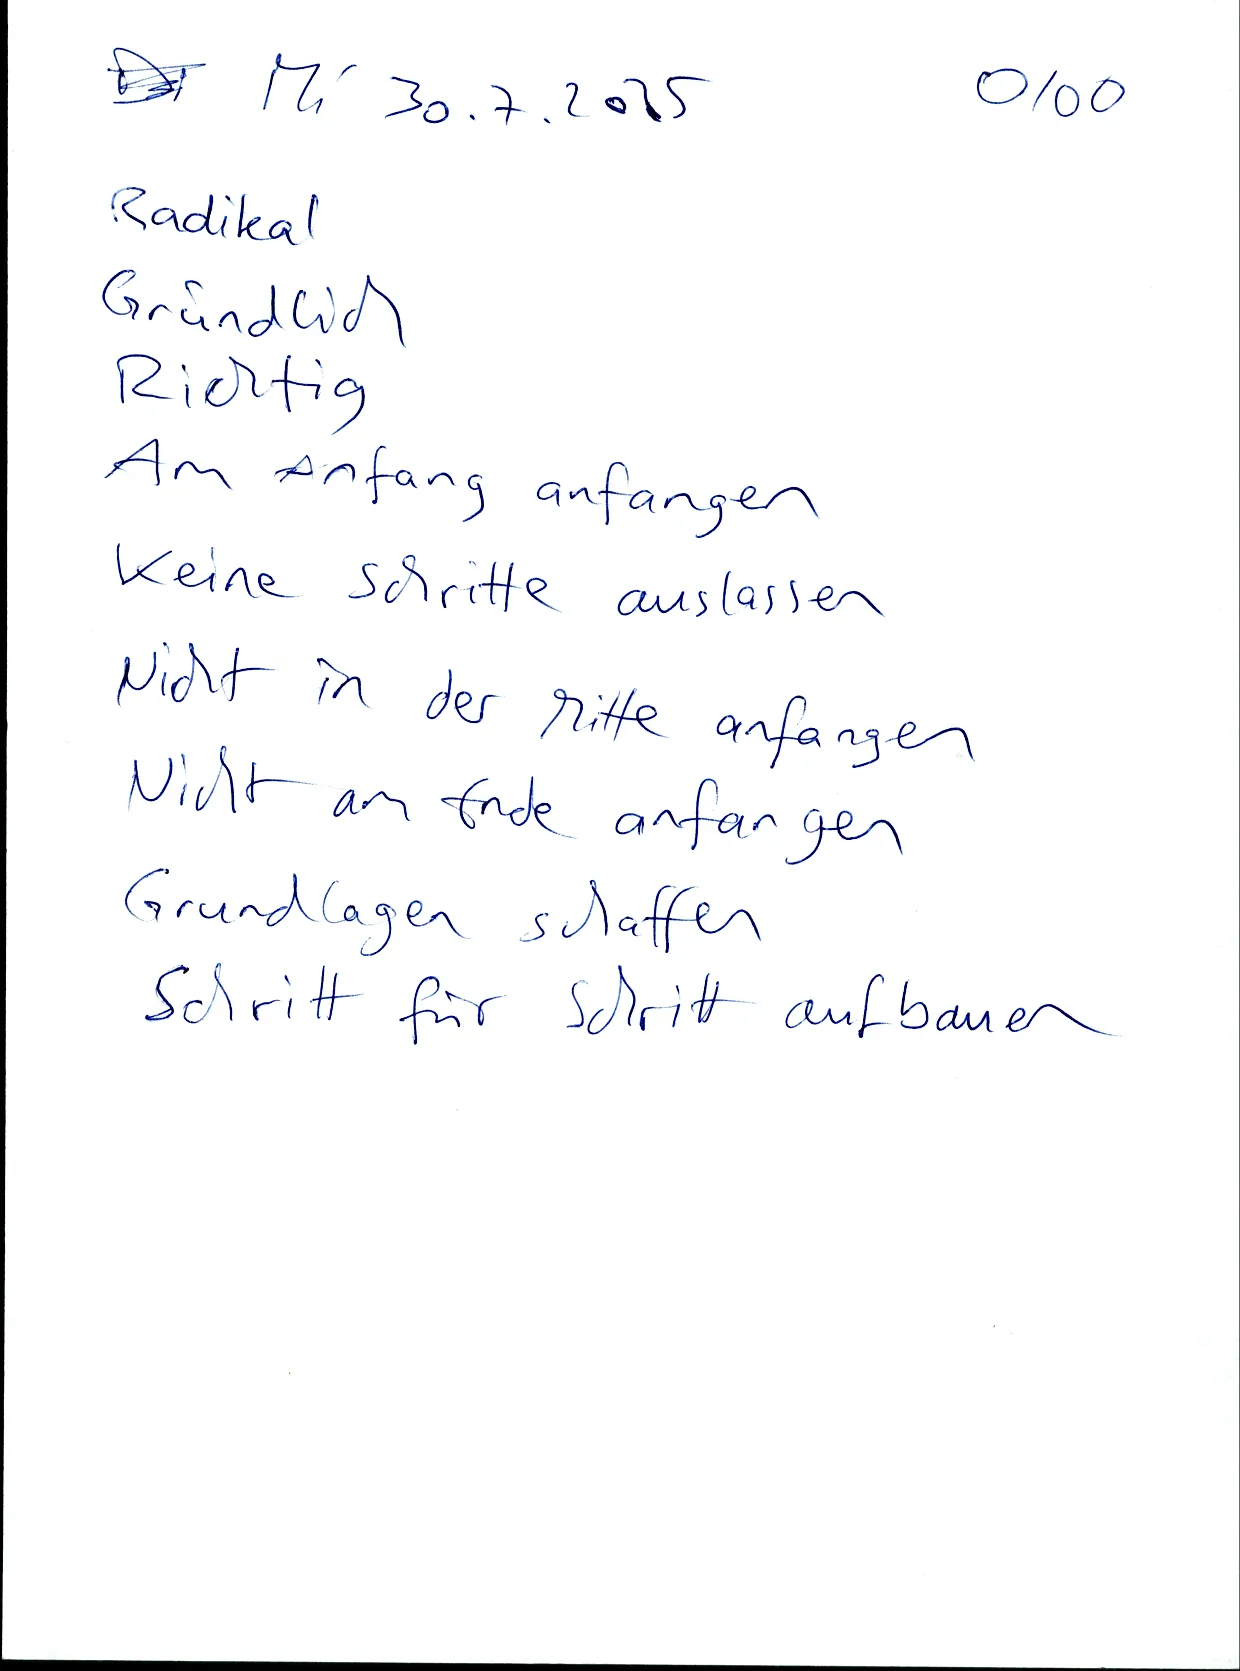 Mi 30.7.2025 0/00
Radikal
Gründlich
Richtig
Am Anfang anfangen
Keine Schritte auslassen
Nicht in der Mitte anfangen
Nicht am Ende anfangen
Grundlagen schaffen
Schritt für Schritt aufbauen